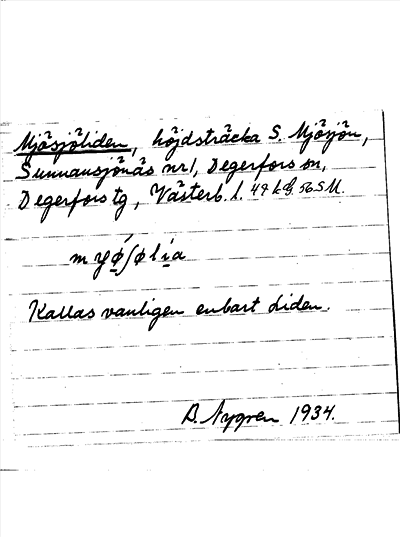 Mjösjöliden, höjdsträcka S. Mjösjön,
Sunnansjönäs nr 1, Degerfors sn,
Degerfors tg, Västerb. l.
myøʃølia
Kallas vanligen enbart Liden.
B. Nygren 1934.